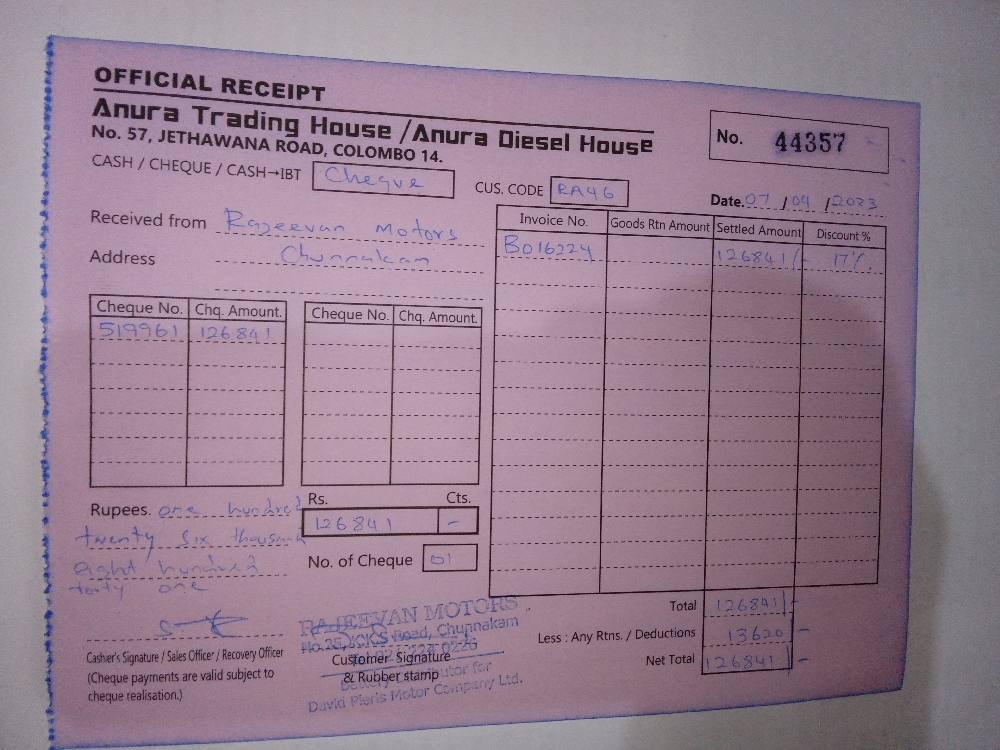 OFFICIAL RECEIPT
Anura Trading House / Anura Diesel House
No. 57, JETHAWANA ROAD, COLOMBO 14.
No. 44357
CASH / CHEQUE / CASH→IBT Cheque
CUS. CODE RA46
Date. 07 / 04 / 2023
Received from Rajeevan Motors
Address Chunnakam
Invoice No. Goods Rtn Amount Settled Amount Discount %
B016224 126841/- 17%.
Cheque No. Chq. Amount. Cheque No. Chq. Amount.
519961 126841
Rupees. one hundred
twenty six thousand
eight hundred
forty one
Rs. Cts.
126841 -
No. of Cheque 01
Total 126841/-
Less : Any Rtns. / Deductions 13620 -
Net Total 126841 -
Cashier's Signature / Sales Officer / Recovery Officer
(Cheque payments are valid subject to
cheque realisation.)
RAJEEVAN MOTORS
Road, Chunnakam
Customer Signature
& Rubber stamp
for
David Pieris Motor Company Ltd.